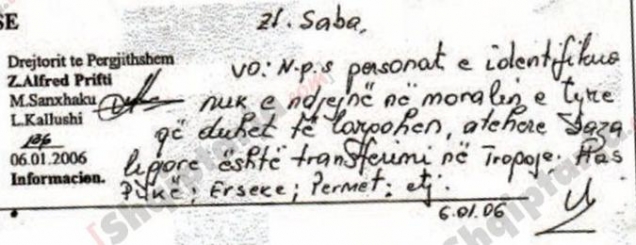 SE
zl. Saba,
Drejtorit te Pergjithshem
Z.Alfred Prifti
M.Sanxhaku
L.Kallushi
06.01.2006
Informacion.
VO: N.p.s personat e identifikuo
nuk e ndjejnë në moralin e tyre
që duhet të largohen, atehere baza
ligore është transferimi në Tropoje; Has
Pukë; Erseke; Permet; etj.
6.01.06